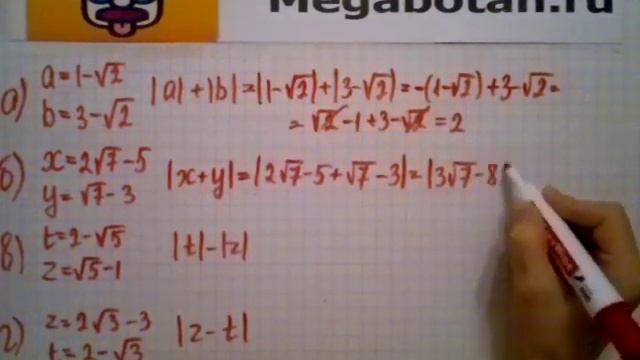 Megabotan.ru
а) a=1-√2
b=3-√2
|a|+|b|=|1-√2|+|3-√2|=-(1-√2)+3-√2=
=√2-1+3-√2=2
б) x=2√7-5
y=√7-3
|x+y|=|2√7-5+√7-3|=|3√7-8
в) t=2-√5
z=√5-1
|t|-|z|
г) z=2√3-3
t=2-√3
|z-t|